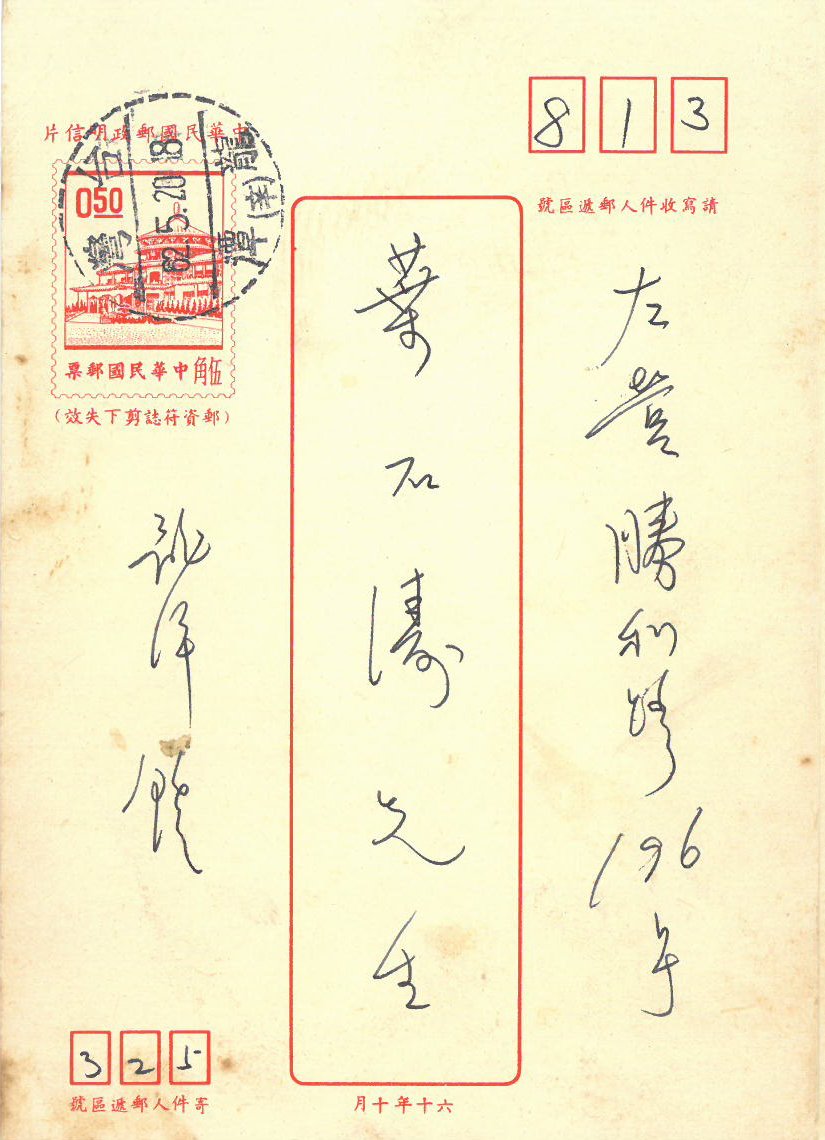 813
請寫收件人郵遞區號
中華民國郵政明信片
台灣
62.5.20.18
龍潭
0.50
伍角 中華民國郵票
(郵資符誌剪下失效)
左營勝利路196号
葉石濤先生
龍潭鍾
325
寄件人郵遞區號
六十年十月